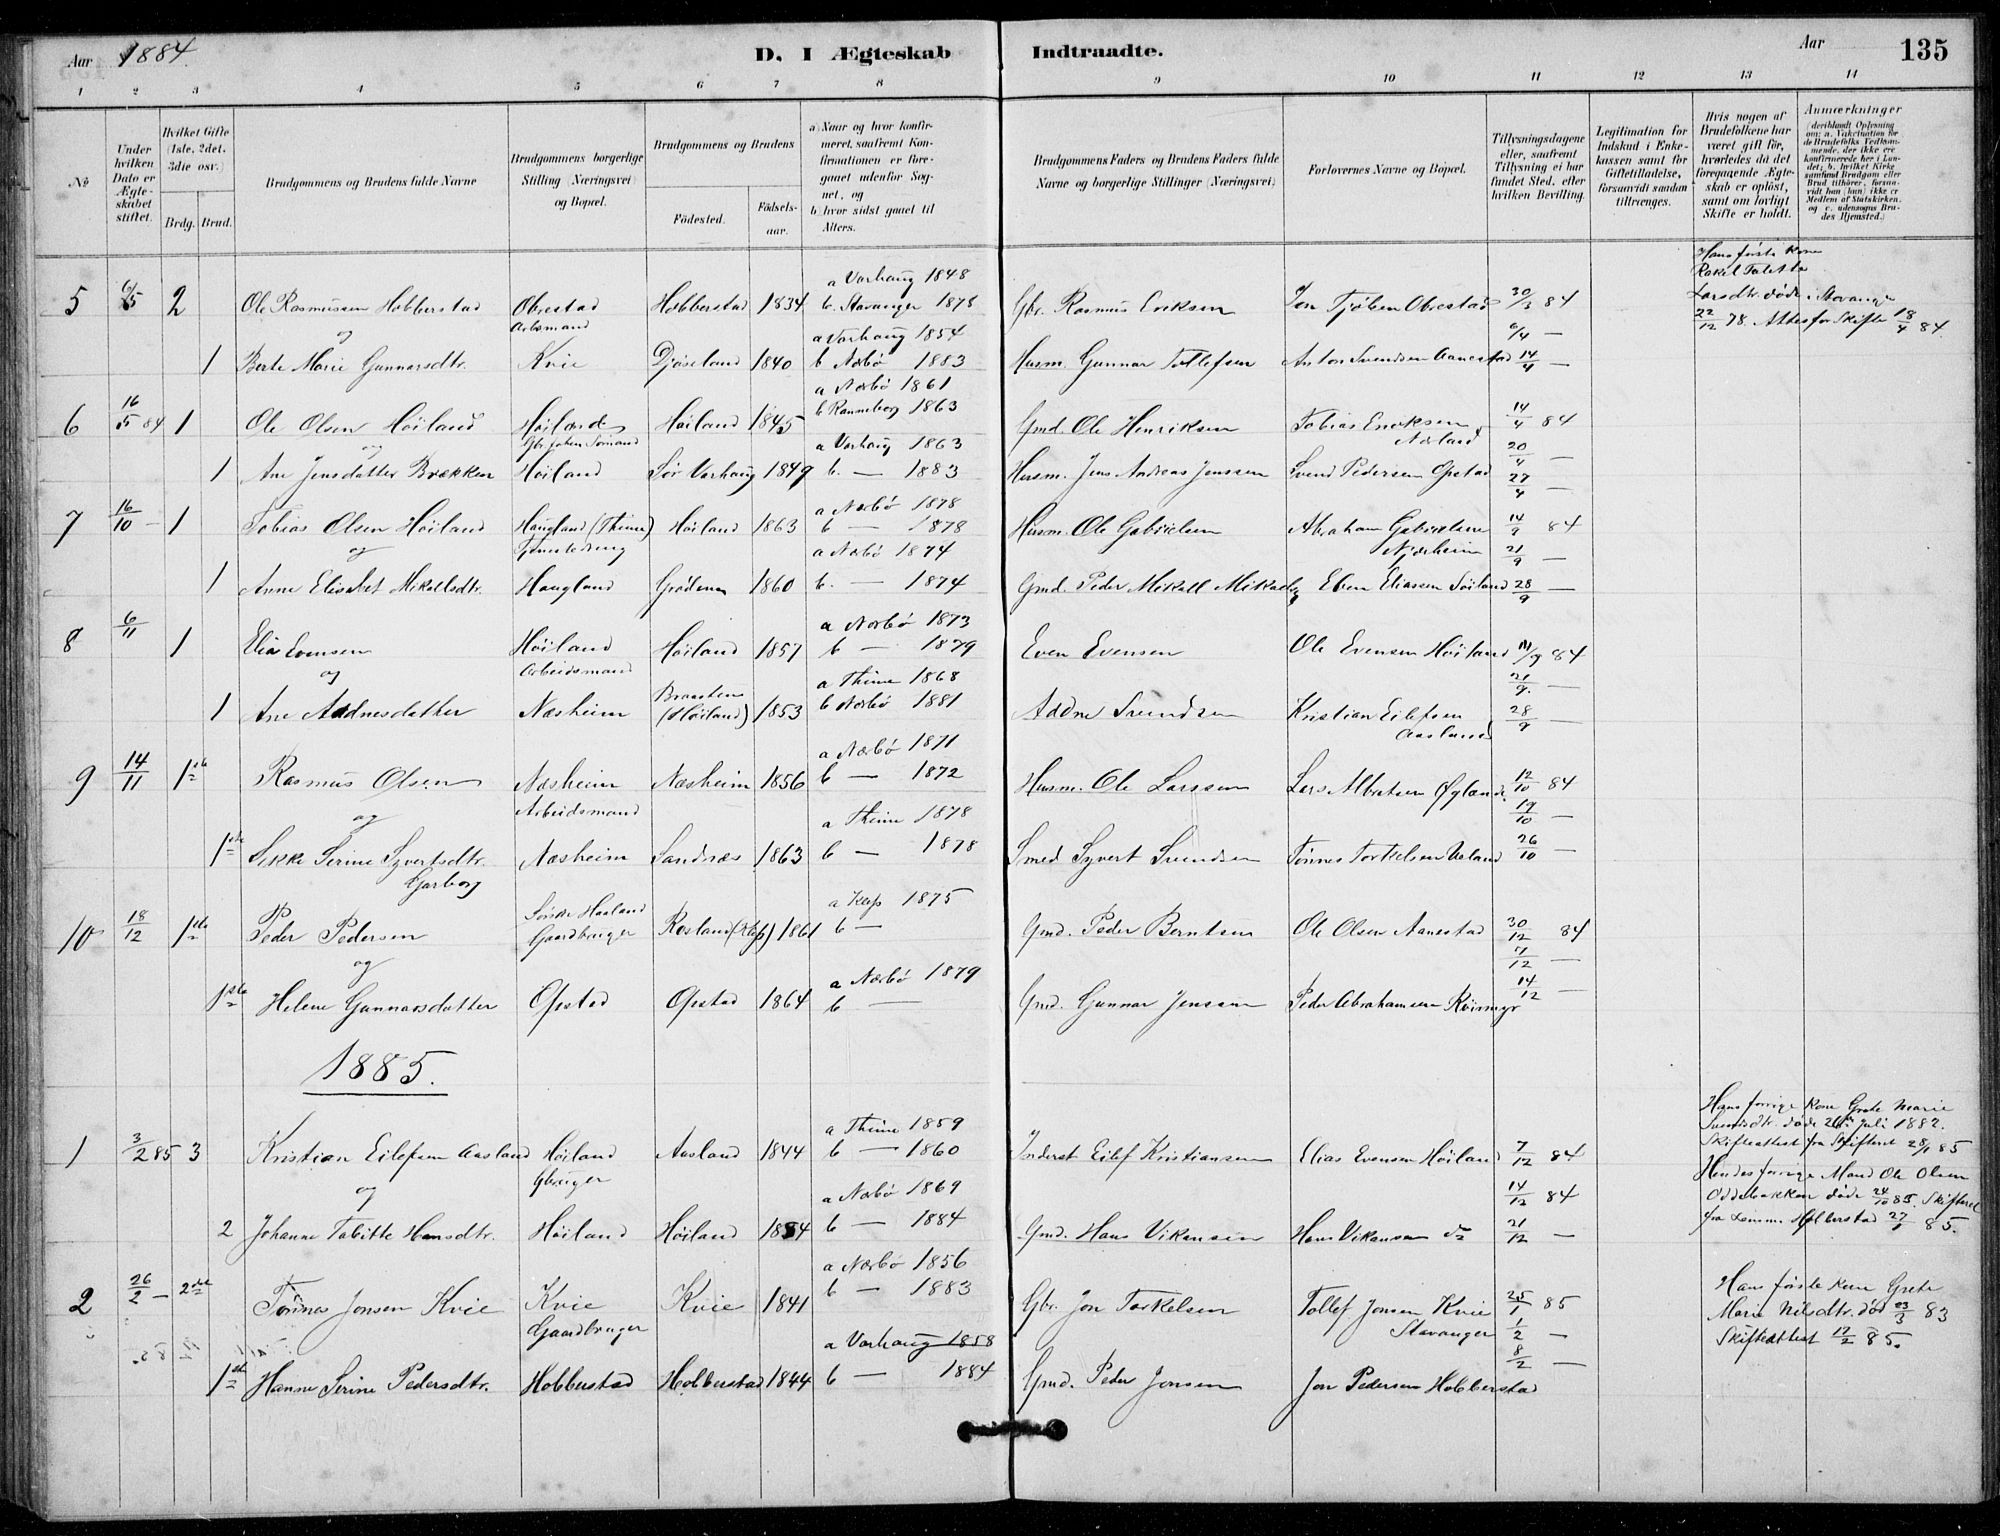 Aar 1884.
D. I Ægteskab Indtraadte.
Aar
135
1 2 3 4 5 6 7 8 9 10 11 12 13 14
No
Under hvilken Dato er Ægteskabet stiftet.
Hvilket Gifte (1ste, 2det, 3die osv.)
Brdg. Brud.
Brudgommens og Brudens fulde Navne
Brudgommens borgerlige Stilling (Næringsvei) og Bopæl.
Brudgommens og Brudens
Födested.
Födselsaar.
a) Naar og hvor konfirmeret, saafremt Konfirmationen er foregaaet udenfor Sognet, og
b) hvor sidst gaaet til Alters.
Brudgommens Faders og Brudens Faders fulde Navne og borgerlige Stillinger (Næringsvei)
Forlovernes Navne og Bopæl.
Tillysningsdagene eller, saafremt Tillysning ei har fundet Sted, efter hvilken Bevilling.
Legitimation for Indskud i Enkekassen samt for Giftetilladelse, forsaavidt saadan tiltrænges.
Hvis nogen af Brudefolkene har været gift för, hvorledes da det foregaaende Ægteskab er oplöst, samt om lovligt Skifte er holdt.
Anmærkninger
(deriblandt Oplysning om: a. Vakcination for de Brudefolks Vedkommende, der ikke ere konfirmerede her i Landet; b. hvilket Kirkesamfund Brudgom eller Brud tilhörer, forsaavidt han (hun) ikke er Medlem af Statskirken, og c. udensogns Brudes Hjemsted.)
5 6/5 2 Ole Rasmussen Hobberstad Obrestad Hobberstad 1834 a Varhaug 1848
b. Stavanger 1878 Gbr. Rasmus Eriksen Jon Tjölsen Obrestad 30/3 84
Hans förste Kone
Rakel Talette
Larsdtr. döde i Stavanger
22/12 78. Attest for Skifte 18/4 84.
og Arbmand a Varhaug 1854 6/4 —
1 Berte Marie Gunnarsdtr. Kvie Djösland 1840 b Nærbö 1883 Husm. Gunnar Tollefsen Anton Svendsen Aanestad 14/4 —
6 16/5 84 1 Ole Olsen Höiland Höiland Höiland 1845 a Nærbö 1861
b Ranneberg 1863 Gmd. Ole Henriksen Tobias Eneksen 14/4 84
Nærland
og a Varhaug 1863 20/4 —
1 Ane Jensdatter Brækken Höiland Sör Varhaug 1849 b. — 1883 Husm. Jens Andreas Jenssen Svend Pedersen Opstad 27/4 —
7 16/10 — 1 Tobias Olsen Höiland Haugland (Thime) Höiland 1863 a Nærbö 1878
b — 1878 Husm. Ole Gabrielsen Abraham Gabrielsen 14/9 84
Njærheim 21/9 —
og Tjenestedreng a Nærbö 1874
1 Anne Elisabet Mikallsdtr. Haugland Grödem 1860 b. — 1874 Gmd. Peder Mikall Mikalls. Eben Eliassen Söiland 28/9 —
8 6/11 1 Elias Evensen Höiland Höiland 1857 a Nærbö 1873
b — 1879 Even Evensen Ole Evensen Höiland 14/9 84
og Arbeidsmand a Thime 1868 21/9. —
1 Ane Aadnesdatter Næsheim Braasten (Höiland) 1853 b Nærbö 1881 Aadne Svendsen Kristian Eilefsen 28/9 —
Aasland
9 14/11 1ste Rasmus Olsen Næsheim Næsheim 1856 a Nærbö 1871
b — 1872 Husm. Ole Larssen Lars Albretsen Öglænd 12/10 84
19/10 —
og Arbeidsmand a Thime 1878
1ste Sikke Serine Syvertsdtr. Næsheim Sandnæs 1863 b — 1878 Smed Syvert Svendsen Tönnes Torkelsen Ueland 26/10 —
Garborg
10 18/12 1ste Peder Pedersen Söndr Haaland Gaardbruger Rosland (Klep) 1861 a Klep 1875
b — Gmd. Peder Berntsen Ole Olsen Aanestad 30/12 84
7/12 —
og a Nærbö 1879
1ste Helene Gunnarsdatter Opstad Opstad 1864 b — Gmd. Gunnar Jenssen Peder Abrahamsen Kvismyr 14/12 —
1885.
1 3/2 85 3 Kristian Eilefsen Aasland Höiland Aasland 1844 a Thime 1859
b — 1860 Inderst Eilef Kristiansen Elias Evensen Höiland 7/12 84
Hans forrige Kone Grete Marie
Svendsdtr. döde 26de Juli 1882.
Skifteattest fra Skifteret 28/1 85
og Gbruger a Nærbö 1869 14/12 84
2 Johanne Tabitte Hansdtr. Höiland Höiland 1854 b — 1884 Gmd. Hans Vikansen Hans Vikansen do 21/12 —
Hendes forrige Mand Ole Olsen
Oddebakken döde 24/10 83. Skifteret
fra Lensm. Hobberstad 27/1 85.
2 26/2 — 2det Tönnes Jonsen Kvie Kvie Kvie 1841 a Nærbö 1856
b — 1883 Gbr. Jon Torkelsen Tollef Jonsen Kvie 25/1 85
Gaardbruger Stavanger 1/2 —
Hans förste Kone Grete
Marie Nilsdtr. död 23/3 83
Skifteattest 17/2 85.
a Varhaug 1858 8/2 —
1ste Hanne Serine Pedersdtr. Hobberstad Hobberstad 1844 b — 1884 Gmd. Peder Jonsen Jon Pedersen Hobberstad